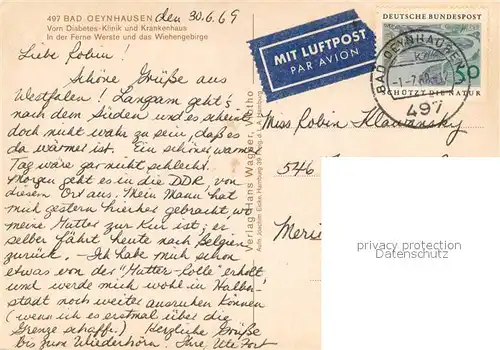 497 BAD OEYNHAUSEN
Vorn Diabetes-Klinik und Krankenhaus
In der Ferne Werste und das Wiehengebirge
den 30.6.69
Liebe Robin!
Schöne Grüße aus
Westfalen! Langsam geht's
nach dem Süden und es scheint
doch nicht wahr zu sein, daß es
da wärmer ist. Ein schöner warmer
Tag wäre gar nicht schlecht.
Morgen geht es in die DDR, von
diesem Ort aus. Mein Mann hat
mich gestern hierher gebracht wo
meine Mutter zur Kur ist, er
selber fährt heute nach Belgien
zurück. - Ich habe mich schon
etwas von der "Mutter-Rolle" erholt
und werde mich wohl in Halber-
stadt noch weiter ausruhen können
(wenn ich es erstmal über die
Grenze schaffe.) Herzliche Grüße
bis zum Wiederhörn. Ihre, Ute
Verlag Hans Wagner, Vlotho
MIT LUFTPOST
PAR AVION
DEUTSCHE BUNDESPOST
50
SCHÜTZT DIE NATUR
BAD OEYNHAUSEN
497
Miss Robin
546
Meris
privacy protection
www.oldthing.de